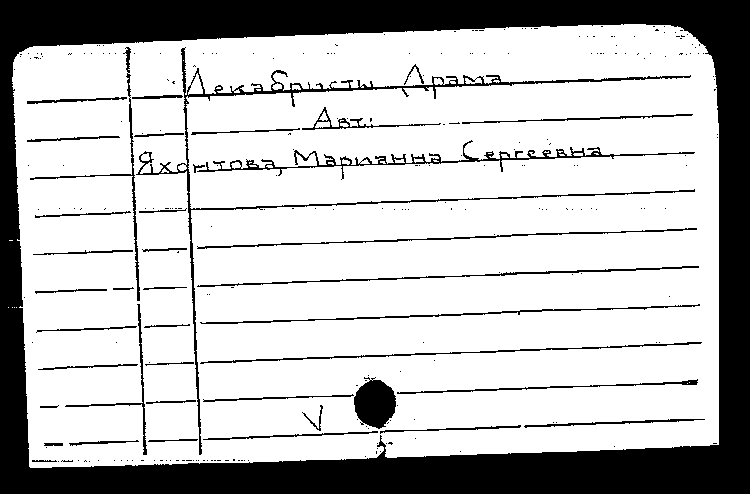 Декабристы Драма
Авт.:
Яхонтова, Марианна Сергеевна.
V